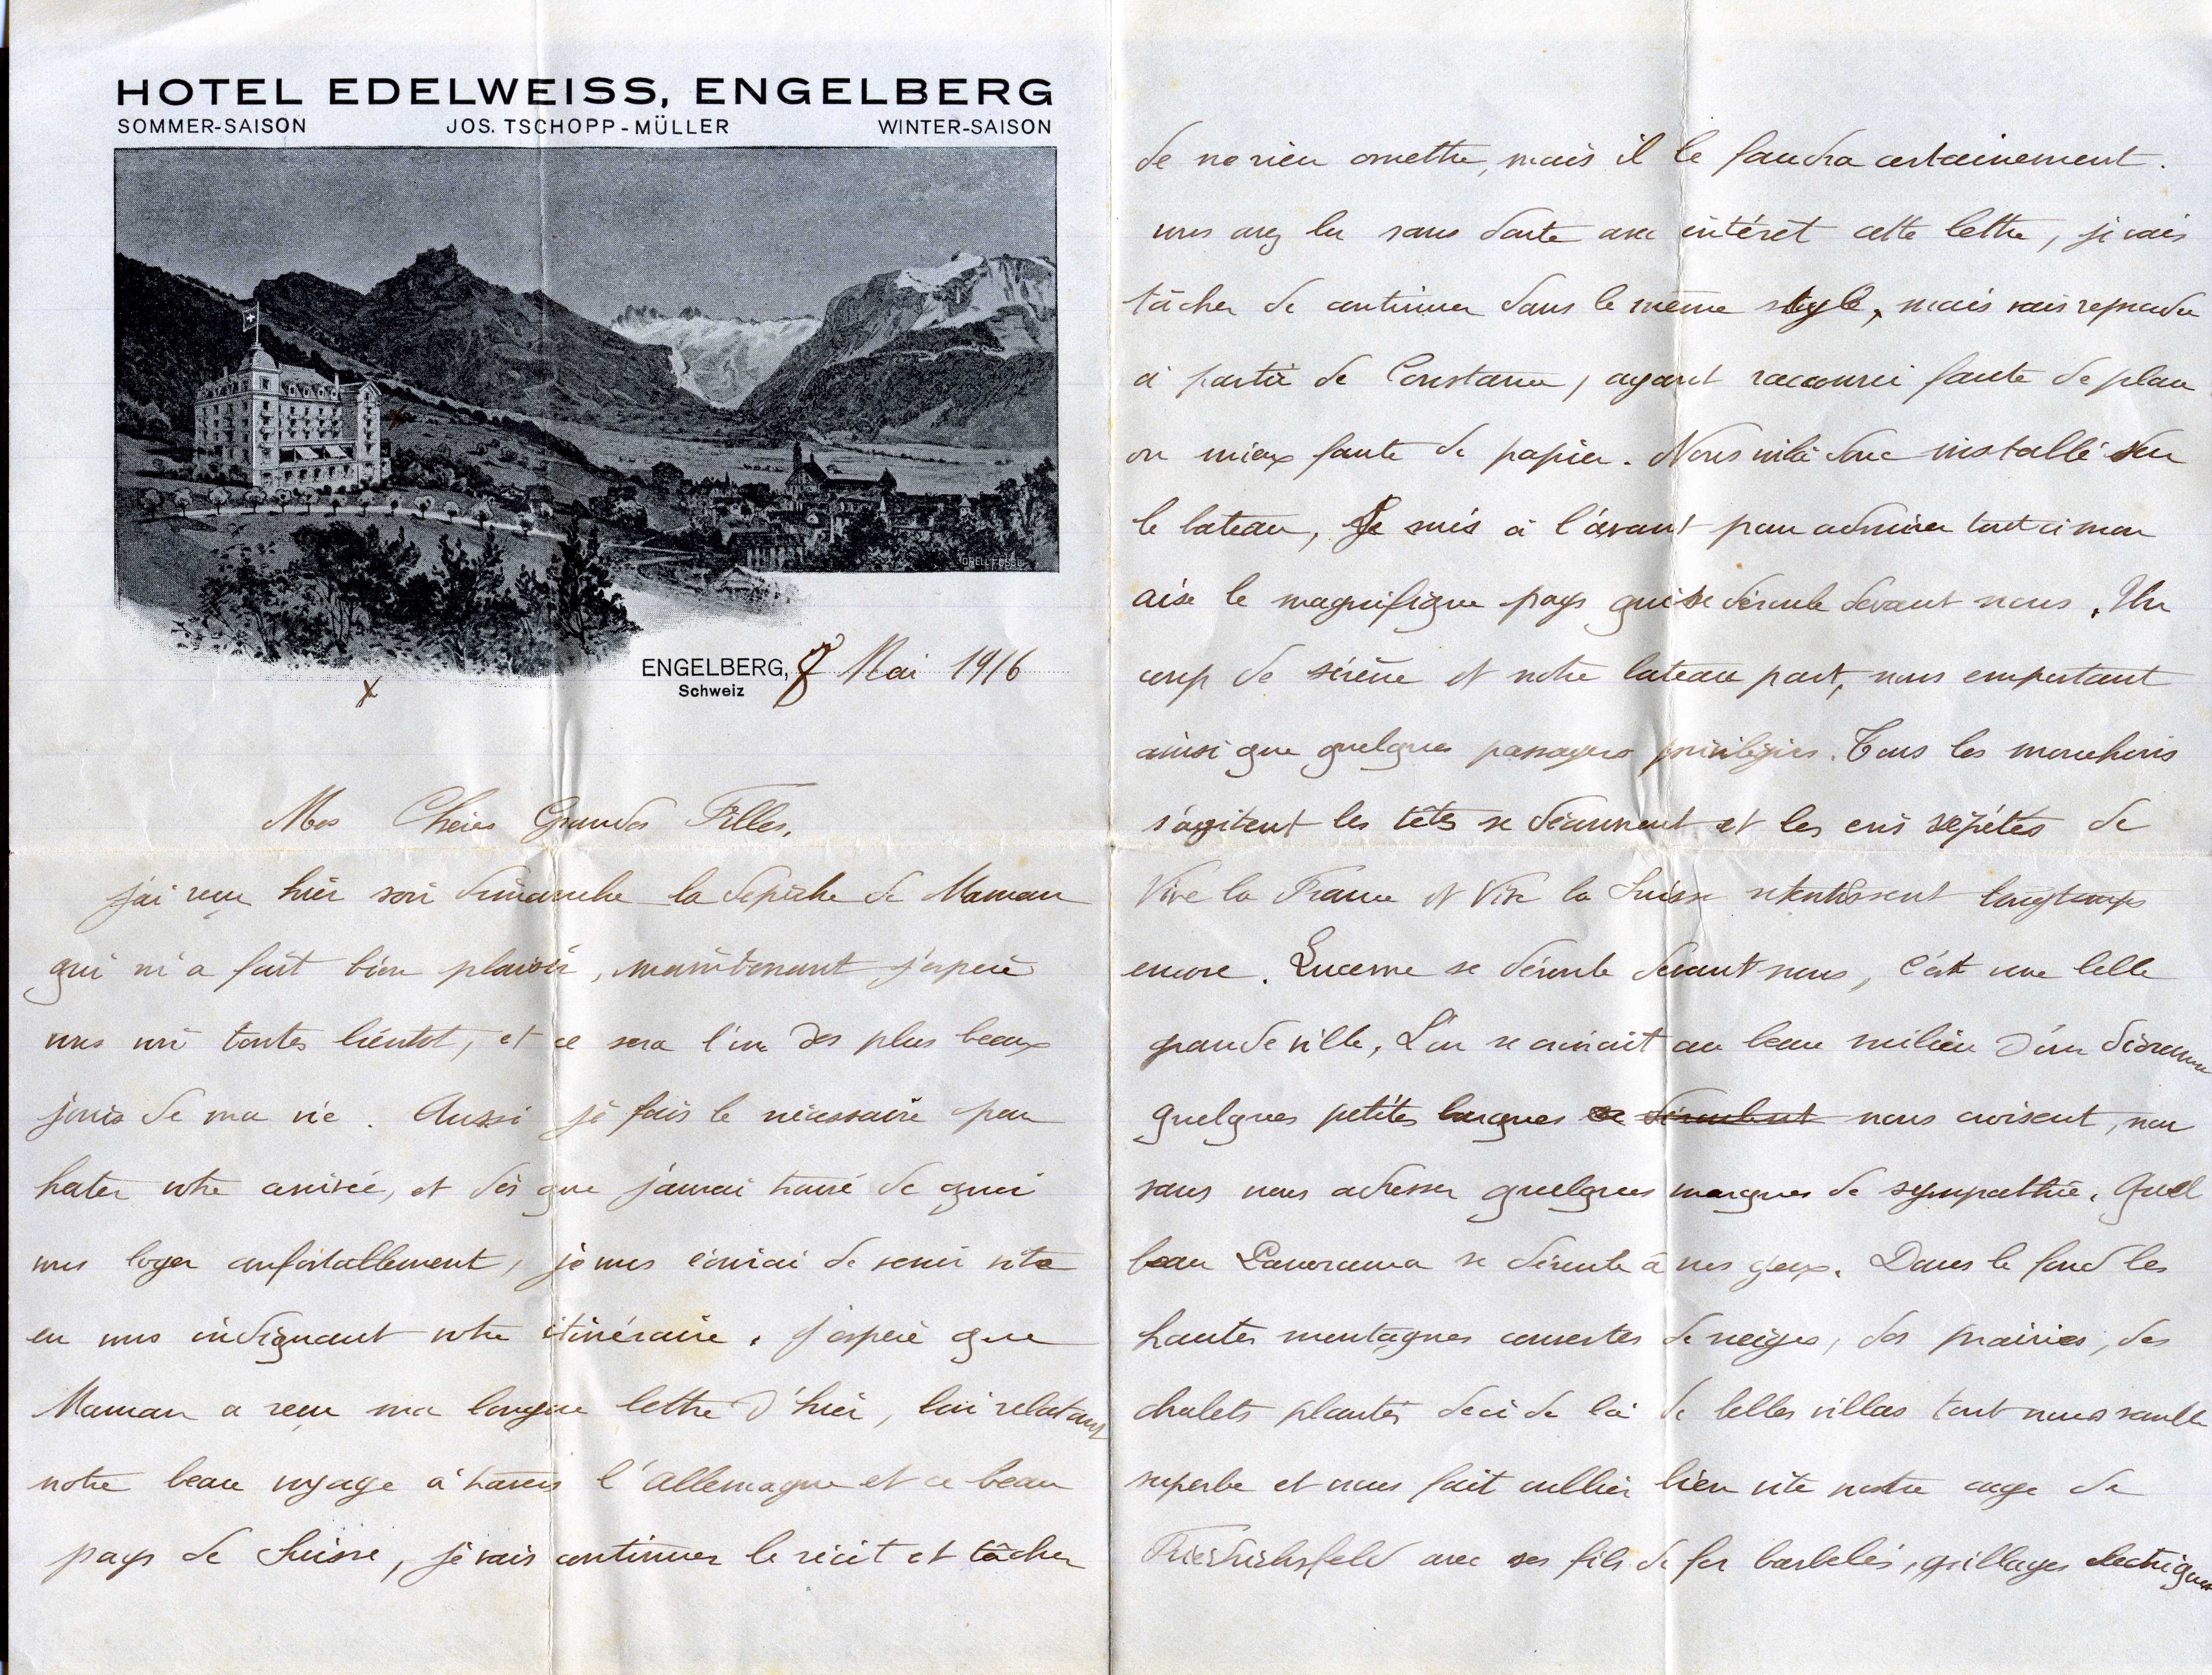 HOTEL EDELWEISS, ENGELBERG
SOMMER-SAISON JOS. TSCHOPP-MÜLLER WINTER-SAISON
ORELL FÜSSLI
ENGELBERG, 8 Mai 1916
Schweiz
x
Mes Chères Grandes Filles,
j'ai reçu hier soir dimanche la depêche de Maman
qui m'a fait bien plaisir, maintenant j'espère
vous voir toutes bientot, et ce sera l'un des plus beaux
jours de ma vie. Aussi je fais le nécessaire pour
hater votre arrivée, et dès que j'aurai trouvé de quoi
vous loger confortablement, je vous écrirai de venir vite
en vous indiquant votre itinéraire. j'espère que
Maman a reçu ma longue lettre d'hier, lui relatant
notre beau voyage à travers l'Allemagne et ce beau
pays de Suisse, je vais continuer le récit et tâcher
de ne rien omettre, mais il le faudra certainement.
vous avez lu sans doute avec intérêt cette lettre, je vais
tâcher de continuer dans le même style, mais vais reprendre
à partir de Constance, ayant raccourci faute de place
ou mieux faute de papier. Nous voilà donc installé sur
le bateau, Je suis à l'avant pour admirer tout à mon
aise le magnifique pays qui se déroule devant nous. Un
coup de sirène et notre bateau part, nous emportant
ainsi que quelques passagers privilégiés. Tous les mouchoirs
s'agitent les têtes se découvrent et les cris répétés de
Vive la France et Vive la Suisse retentissent longtemps
encore. Lucerne se déroule devant nous, c'est une belle
grande ville, L'on se croirait au beau milieu d'un diorama
quelques petites barques se déroulent nous croisent, non
sans nous adresser quelques marques de sympathie. Quel
beau Panorama se déroule à nos yeux. Dans le fond les
hautes montagnes couvertes de neiges, des prairies, des
chalets plantés deci de là de belles villas tout nous semble
superbe et nous fait oublier bien vite notre cage de
Friedrichsfeld avec ses fils de fer barbelés, grillages electriques